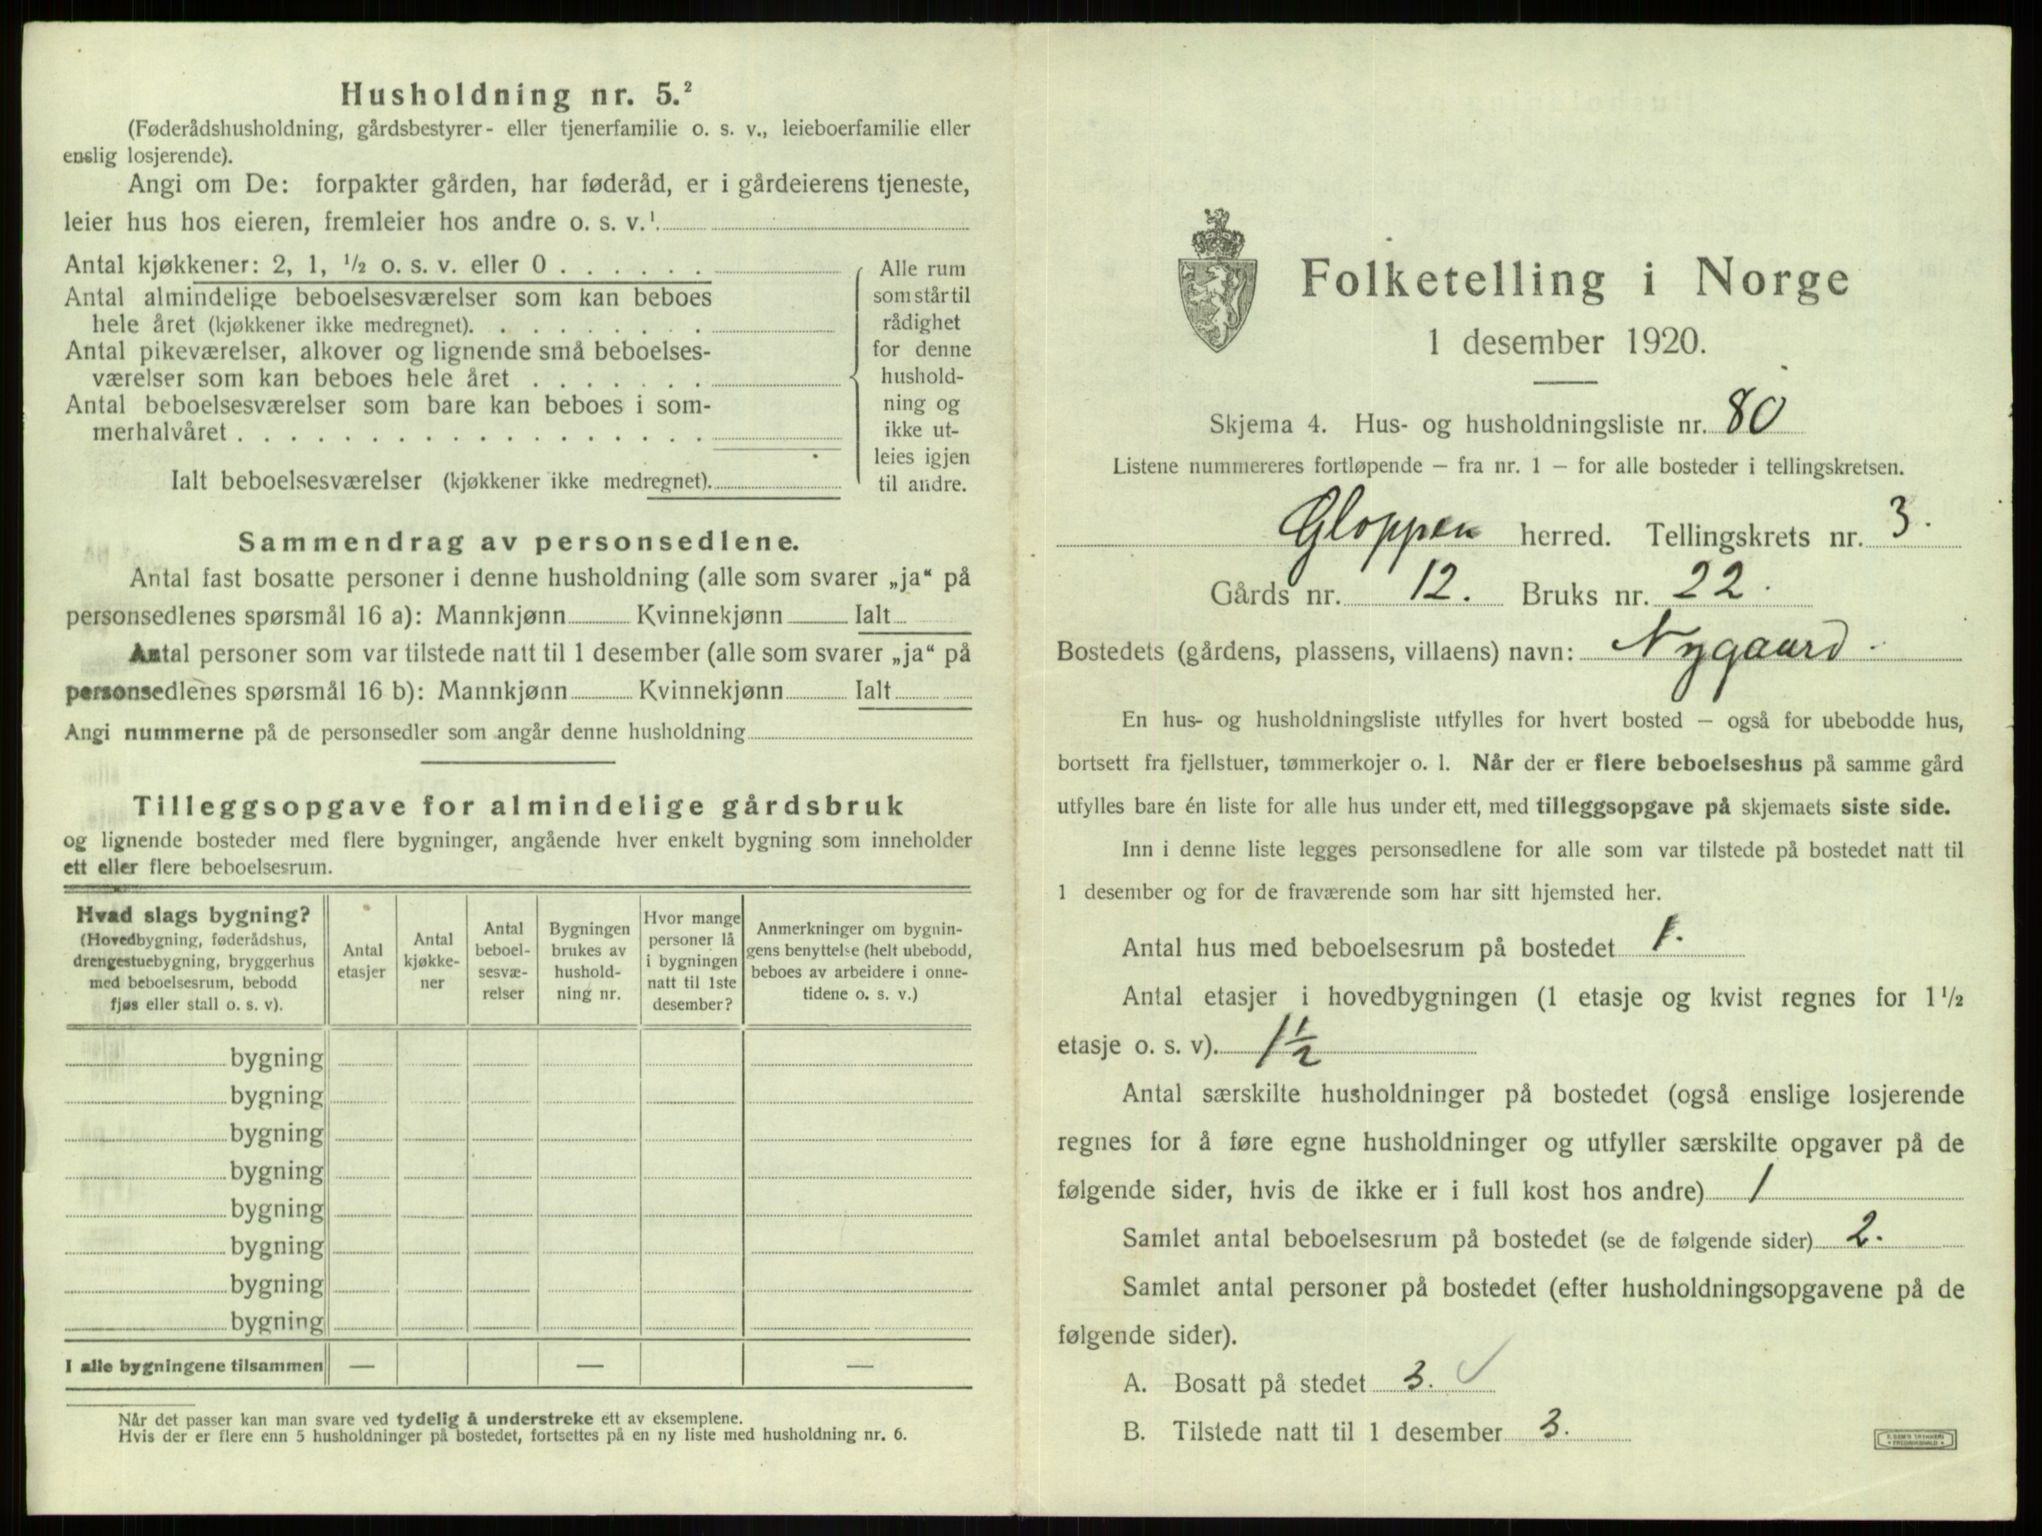 Husholdning nr. 5.²
(Føderådshusholdning, gårdsbestyrer- eller tjenerfamilie o. s. v., leieboerfamilie eller
enslig losjerende).
Angi om De: forpakter gården, har føderåd, er i gårdeierens tjeneste,
leier hus hos eieren, fremleier hos andre o. s. v.¹
Antal kjøkkener: 2, 1, ½ o. s. v. eller 0 . . . . . .
Antal almindelige beboelsesværelser som kan beboes
hele året (kjøkkener ikke medregnet). . . . . . . . .
Antal pikeværelser, alkover og lignende små beboelses-
værelser som kan beboes hele året . . . . . . .
Antal beboelsesværelser som bare kan beboes i som-
merhalvåret . . . . . . . . . . . . . . . . . .
Ialt beboelsesværelser (kjøkkener ikke medregnet).
Alle rum
som står til
rådighet
for denne
hushold-
ning og
ikke ut-
leies igjen
til andre.
Sammendrag av personsedlene.
Antal fast bosatte personer i denne husholdning (alle som svarer „ja“ på
personsedlenes spørsmål 16 a): Mannkjønn Kvinnekjønn Ialt
Antal personer som var tilstede natt til 1 desember (alle som svarer „ja“ på
personsedlenes spørsmål 16 b): Mannkjønn Kvinnekjønn Ialt
Angi nummerne på de personsedler som angår denne husholdning
Tilleggsopgave for almindelige gårdsbruk
og lignende bosteder med flere bygninger, angående hver enkelt bygning som inneholder
ett eller flere beboelsesrum.
Hvad slags bygning?
(Hovedbygning, føderådshus,
drengestuebygning, bryggerhus
med beboelsesrum, bebodd
fjøs eller stall o. s. v).
Antal
etasjer
Antal
kjøkke-
ner
Antal
beboel-
sesvæ-
relser
Bygningen
brukes av
hushold-
ning nr.
Hvor mange
personer lå
i bygningen
natt til 1ste
desember?
Anmerkninger om bygnin-
gens benyttelse (helt ubebodd,
beboes av arbeidere i onne-
tidene o. s. v.)
bygning
bygning
bygning
bygning
bygning
bygning
bygning
bygning
I alle bygningene tilsammen — — —
Når det passer kan man svare ved tydelig å understreke ett av eksemplene.
Hvis der er flere enn 5 husholdninger på bostedet, fortsettes på en ny liste med husholdning nr. 6.
Folketelling i Norge
1 desember 1920.
Skjema 4. Hus- og husholdningsliste nr. 80
Listene nummereres fortløpende – fra nr. 1 – for alle bosteder i tellingskretsen.
Gloppen herred. Tellingskrets nr. 3.
Gårds nr. 12. Bruks nr. 22.
Bostedets (gårdens, plassens, villaens) navn: Nygaard.
En hus- og husholdningsliste utfylles for hvert bosted – også for ubebodde hus,
bortsett fra fjellstuer, tømmerkojer o. l. Når der er flere beboelseshus på samme gård
utfylles bare én liste for alle hus under ett, med tilleggsopgave på skjemaets siste side.
Inn i denne liste legges personsedlene for alle som var tilstede på bostedet natt til
1 desember og for de fraværende som har sitt hjemsted her.
Antal hus med beboelsesrum på bostedet 1.
Antal etasjer i hovedbygningen (1 etasje og kvist regnes for 1½
etasje o. s. v). 1½
Antal særskilte husholdninger på bostedet (også enslige losjerende
regnes for å føre egne husholdninger og utfyller særskilte opgaver på de
følgende sider, hvis de ikke er i full kost hos andre) 1
Samlet antal beboelsesrum på bostedet (se de følgende sider) 2.
Samlet antal personer på bostedet (efter husholdningsopgavene på de
følgende sider).
A. Bosatt på stedet 3. ✓
B. Tilstede natt til 1 desember 3.